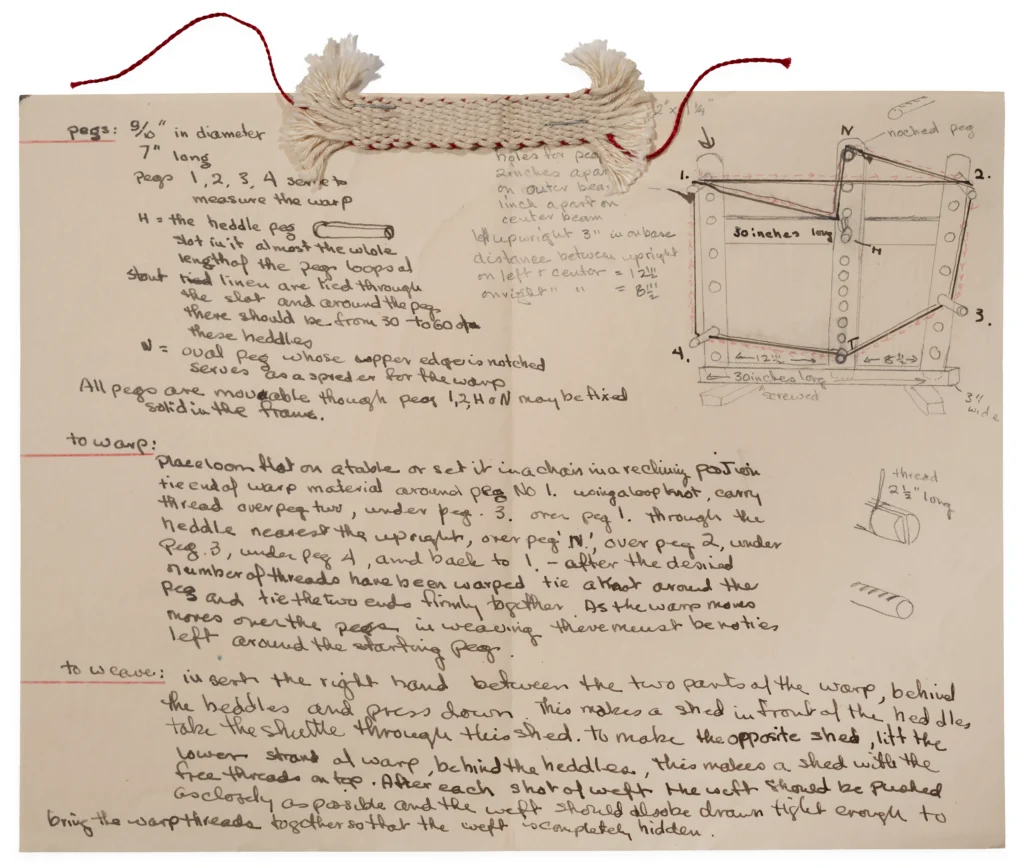 pegs: 9/10" in diameter
7" long
pegs 1, 2, 3, 4 serve to
measure the warp
H = the heddle peg
slot in it almost the whole
length of the peg loops of
stout tied linen are tied through
the slot and around the peg
there should be from 30 to 60 of
these heddles
N = oval peg whose upper edge is notched
serves as a spreder for the warp
All pegs are moveable though peg 1, 2, H or N may be fixed
solid in the frame.
2" x 1 1/4"
holes for peg
2 inches apart
on outer bea
1 inch apart on
center beam
left upright 3" in on base
distance between upright
on left & center = 12 1/2"
on right " " = 8 1/2"
N
noched peg
1.
2.
30 inches long
H
3.
4.
T
12 1/2"
8 1/2"
30 inches long
screwed
3" wide
to warp:
place loom flat on a table or set it in a chair in a reclining position
tie end of warp material around peg No 1. using a loop knot, carry
thread over peg two, under peg. 3. over peg 1. through the
heddle nearest the upright, over peg 'N', over peg 2, under
peg. 3, under peg 4, and back to 1. - after the desired
number of threads have been warped tie a knot around the
peg and tie the two ends firmly together. As the warp moves
moves over the pegs in weaving there must be no ties
left around the starting peg.
thread
2 1/2" long
to weave: insert the right hand between the two parts of the warp, behind
the heddles and press down. This makes a shed in front of the heddles
take the shuttle through this shed. To make the opposite shed, lift the
lower strand of warp, behind the heddles, this makes a shed with the
free threads on top. After each shot of weft the weft should be pushed
as closely as possible and the weft should also be drawn tight enough to
bring the warp threads together so that the weft is completely hidden.